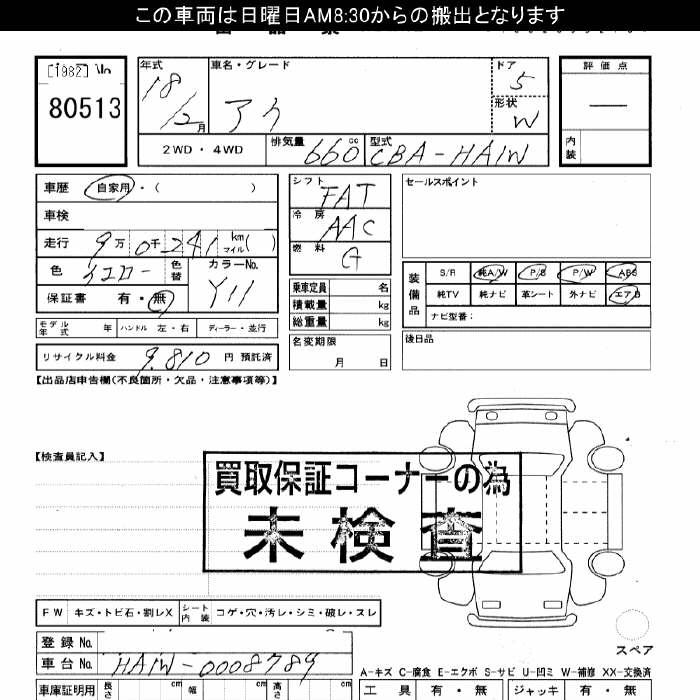 この車両は日曜日AM8:30からの搬出となります
[1982] No
80513
年式 18/12月
車名・グレード アイ
ドア 5
形状 W
評価点
内装
2WD・4WD
排気量 660cc
型式 CBA-HA1W
車歴 自家用・( )
車検
走行 9万0千241km マイル( )
色 イエロー 色替
カラーNo. Y11
保証書 有・無
モデル年式 年 ハンドル 左・右 ディーラー・並行
リサイクル料金 9,810 円 預託済
シフト FAT
冷房 AAC
燃料 G
乗車定員 名
積載量 kg
総重量 kg
名変期限
月 日
セールスポイント
装備品
S/R 純A/W P/S P/W ABS
純TV 純ナビ 革シート 外ナビ エアB
ナビ型番:
後日品
【出品店申告欄(不良箇所・欠品・注意事項等)】
【検査員記入】
買取保証コーナーの為
未検査
FW キズ・トビ石・割レX シート内装 コゲ・穴・汚レ・シミ・破レ・スレ
スペア
登録 No.
車台 No. HA1W-0008789
A-キズ C-腐食 E-エクボ S-サビ U-凹ミ W-補修 XX-交換済
車庫証明用 長さ cm 幅 cm 高さ cm
工具 有・無 ジャッキ 有・無